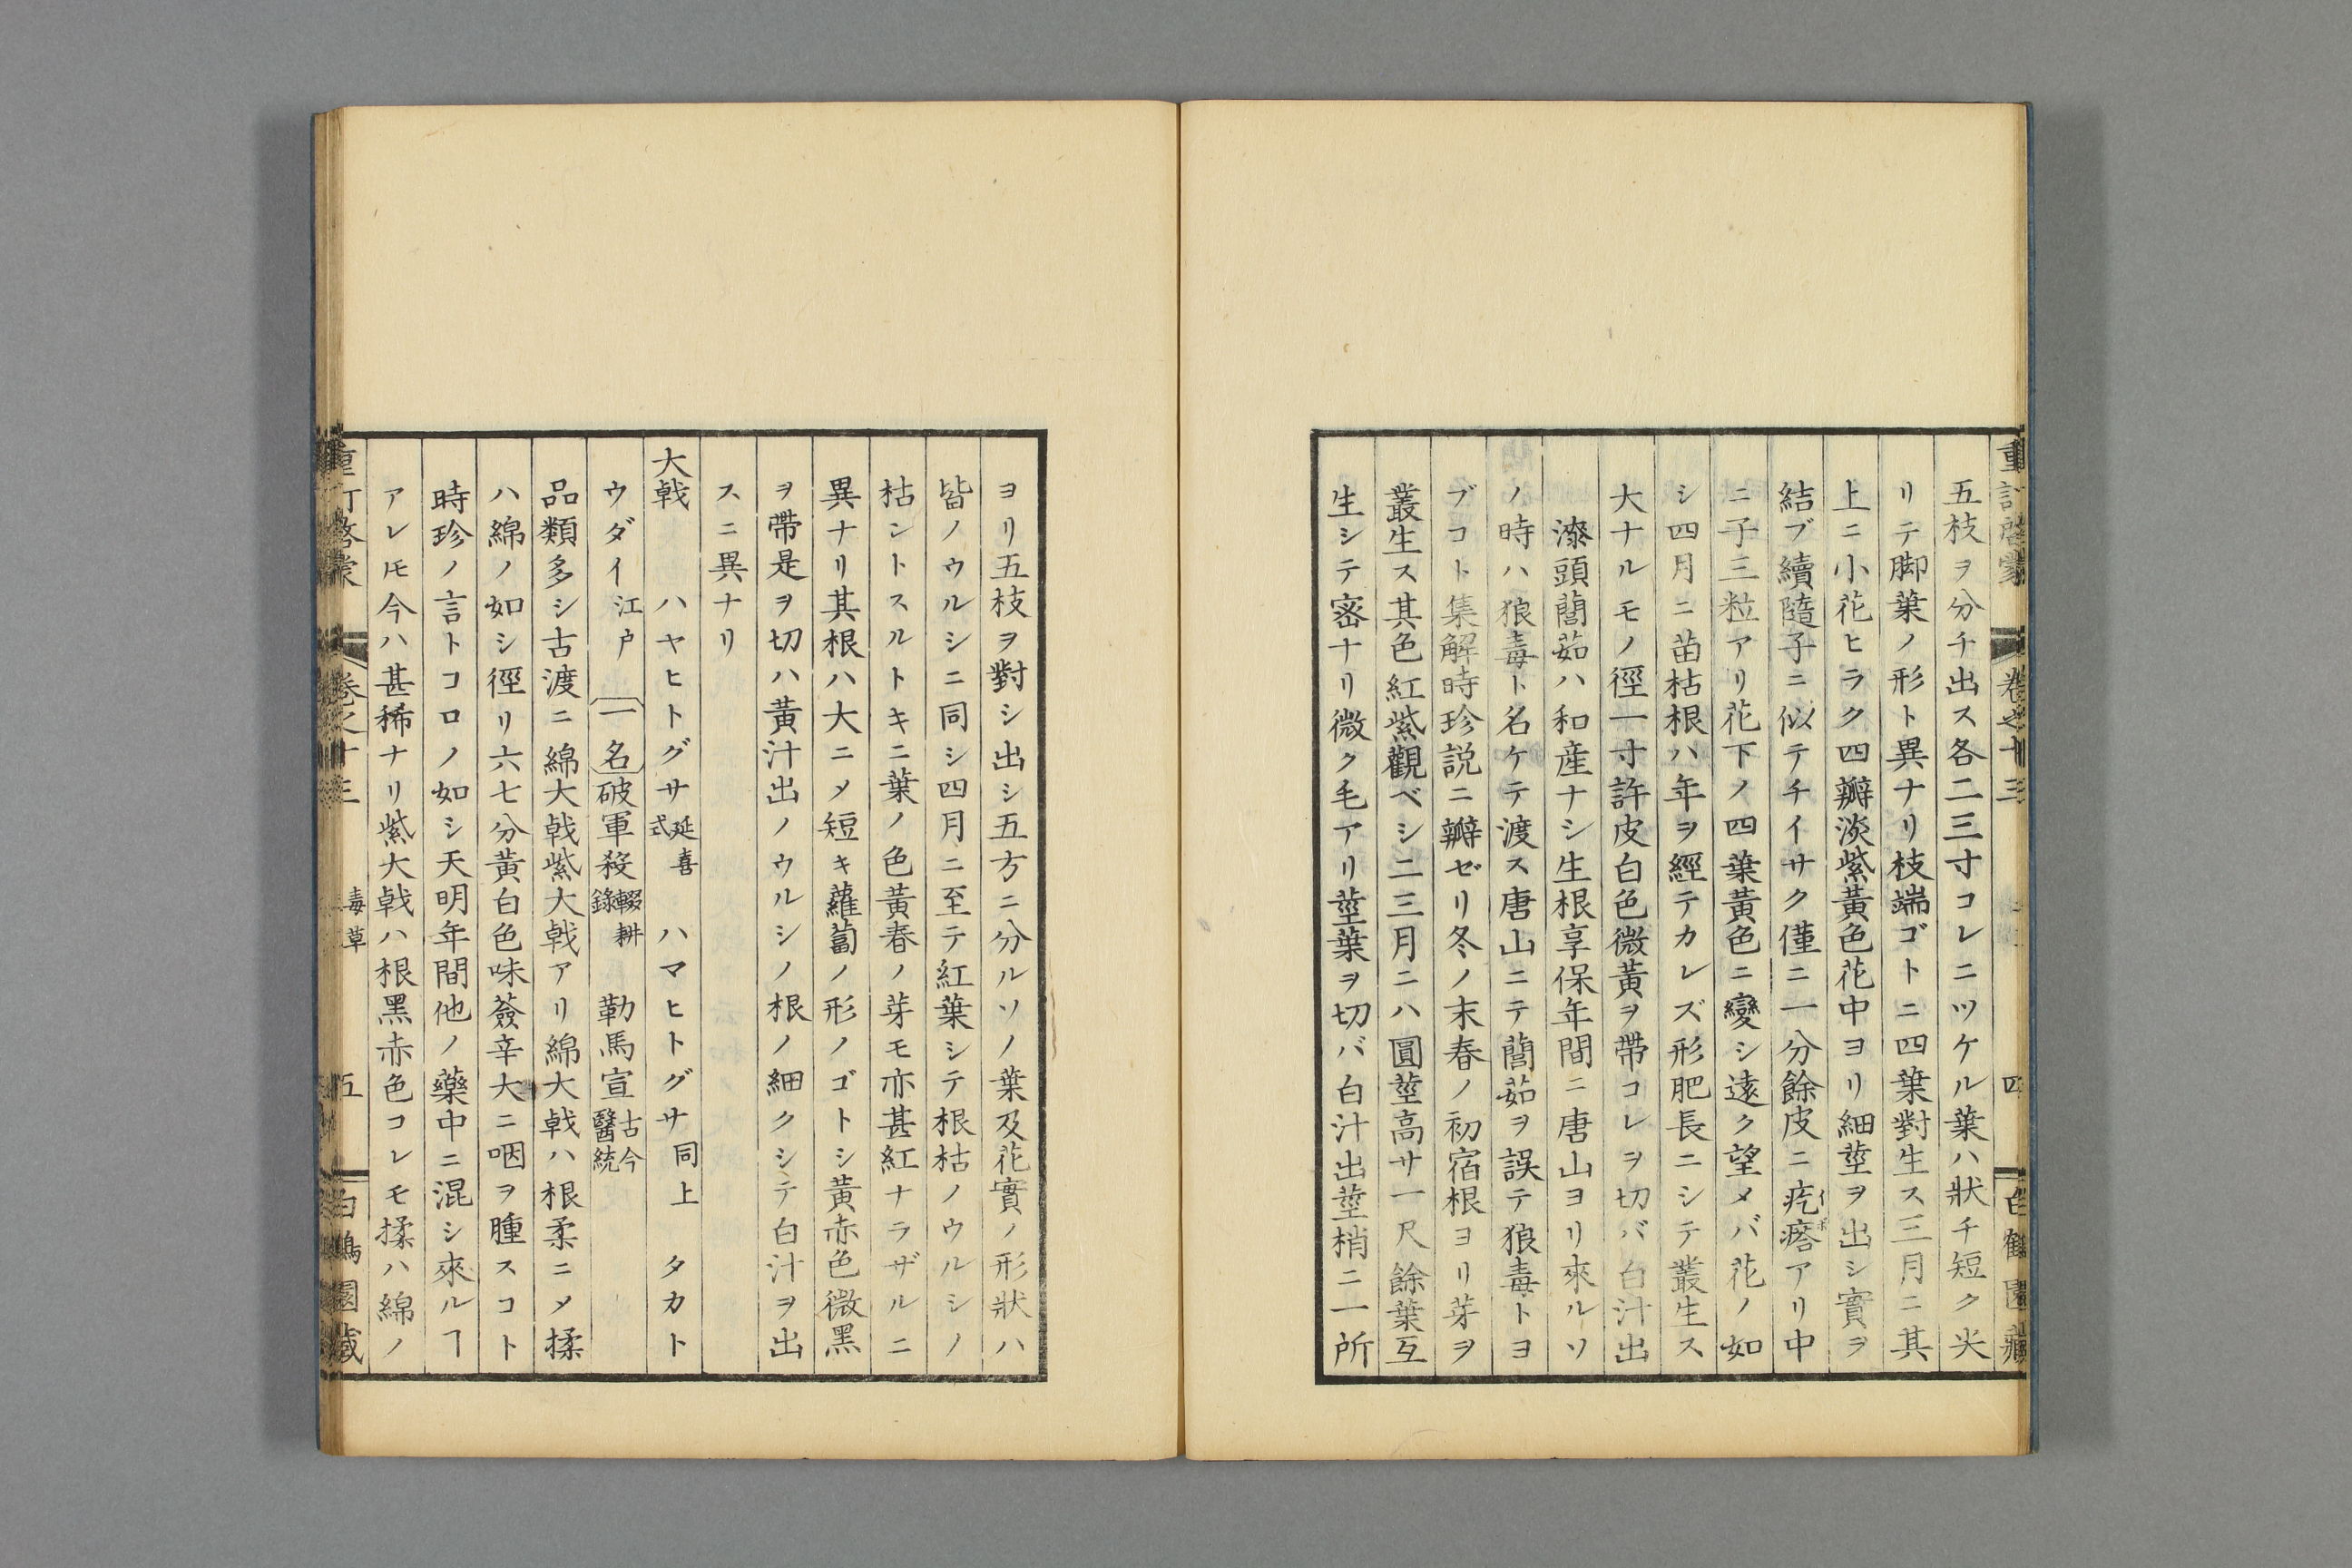 重訂啓蒙 卷之十三 四 白鶴園藏
五枝ヲ分チ出ス各二三寸コレニツケル葉ハ狀チ短ク尖
リテ脚葉ノ形ト異ナリ枝端ゴトニ四葉對生ス三月ニ其
上ニ小花ヒラク四瓣淡紫黃色花中ヨリ細莖ヲ出シ實ヲ
結ブ續隨子ニ似テチイサク僅ニ一分餘皮ニ疙瘩アリ中
イボ
ニ子三粒アリ花下ノ四葉黃色ニ變シ遠ク望メバ花ノ如
シ四月ニ苗枯根ハ年ヲ經テカレズ形肥長ニシテ叢生ス
大ナルモノ徑一寸許皮白色微黃ヲ帶コレヲ切バ白汁出
漆頭䕡茹ハ和産ナシ生根享保年間ニ唐山ヨリ來ルソ
ノ時ハ狼毒ト名ケテ渡ス唐山ニテ䕡茹ヲ誤テ狼毒トヨ
ブコト集解時珍説ニ瓣ゼリ冬ノ末春ノ初宿根ヨリ芽ヲ
叢生ス其色紅紫觀ベシ二三月ニハ圓莖高サ一尺餘葉互
生シテ密ナリ微ク毛アリ莖葉ヲ切バ白汁出莖梢ニ一所
ヨリ五枝ヲ對シ出シ五方ニ分ルソノ葉及花實ノ形狀ハ
皆ノウルシニ同シ四月ニ至テ紅葉シテ根枯ノウルシノ
枯ントスルトキニ葉ノ色黃春ノ芽モ亦甚紅ナラザルニ
異ナリ其根ハ大ニメ短キ蘿蔔ノ形ノゴトシ黃赤色微黑
ヲ帶是ヲ切ハ黃汁出ノウルシノ根ノ細クシテ白汁ヲ出
スニ異ナリ
大戟 ハヤヒトグサ 延喜式 ハマヒトグサ 同上 タカト
ウダイ 江戸 一名 破軍殺 輟耕錄 勒馬宣 古今醫統
品類多シ古渡ニ綿大戟紫大戟アリ綿大戟ハ根柔ニメ揉
ハ綿ノ如シ徑リ六七分黃白色味薟辛大ニ咽ヲ腫スコト
時珍ノ言トコロノ如シ天明年間他ノ藥中ニ混シ來ルヿ
アレ𪜈今ハ甚稀ナリ紫大戟ハ根黑赤色コレモ揉ハ綿ノ
重訂啓蒙 卷之十三 毒草 五 白鶴園藏